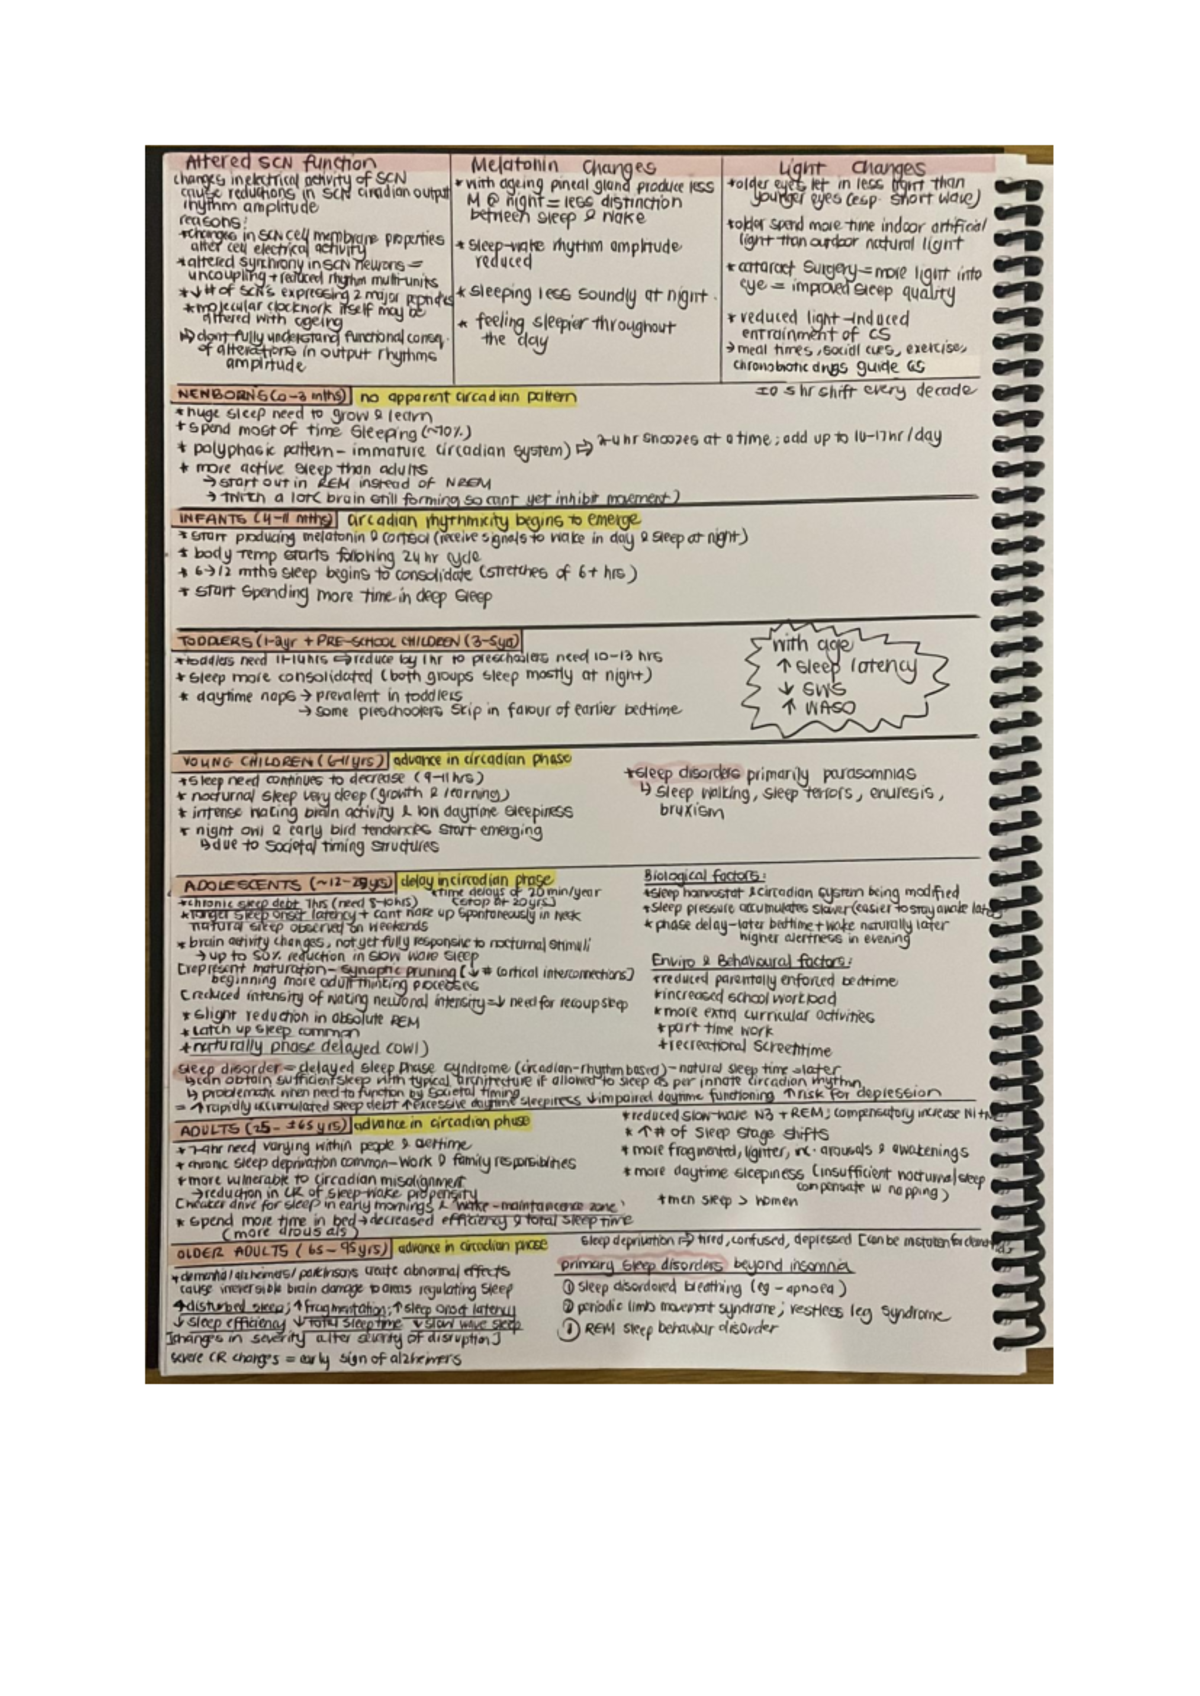 Altered SCN function
changes in electrical activity of SCN
cause reductions in SCN ciradian output
rhythm amplitude
reasons:
*changes in SCN cell membrane properties
alter cell electrical activity
*altered synchrony in SCN neurons =
uncoupling + reduced rhythm multi-units
*↓ # of SCN's expressing 2 major peptides
*molecular clockwork itself may be
altered with ageing
↳ dont fully understand functional conseq.
of alterations in output rhythms
amplitude
Melatonin Changes
* with ageing pineal gland produce less
M @ night = less distinction
between sleep & wake
* sleep-wake rhythm amplitude
reduced
* sleeping less soundly at night.
* feeling sleepier throughout
the day
Light Changes
*older eyes let in less light than
younger eyes (esp. short wave)
*older spend more time indoor artificial
light than outdoor natural light
* cataract surgery = more light into
eye = improved sleep quality
* reduced light-induced
entrainment of CS
→ meal times, social cues, exercise,
chronobiotic drugs guide CS
NEWBORNS (0-3 mths) no apparent circadian pattern
±0.5hr shift every decade
* huge sleep need to grow & learn
* spend most of time sleeping (~70%)
* polyphasic pattern - immature circadian system) ⇨ 2-4 hr snoozes at a time; add up to 10-17hr/day
* more active sleep than adults
→ start out in REM instead of NREM
→ twitch a lot( brain still forming so cant yet inhibit movement)
INFANTS (4-11 mths) circadian rhythmicity begins to emerge
* start producing melatonin & cortisol (receive signals to wake in day & sleep at night)
* body temp starts following 24 hr cycle
* 6→12 mths sleep begins to consolidate (stretches of 6+ hrs)
* start spending more time in deep sleep
TODDLERS (1-2yr + PRE-SCHOOL CHILDREN (3-5yo)
*toddlers need 11-14hrs ⇨ reduce by 1hr to preschoolers need 10-13 hrs
* sleep more consolidated (both groups sleep mostly at night)
* daytime naps → prevalent in toddlers
→ some preschoolers skip in favour of earlier bedtime
with age
↑ sleep latency
↓ SWS
↑ WASO
YOUNG CHILDREN (6-11yrs) advance in circadian phase
*sleep need continues to decrease (9-11hrs)
* nocturnal sleep very deep (growth & learning)
* intense waking brain activity & low daytime sleepiness
* night owl & early bird tendencies start emerging
↳ due to societal timing structures
*sleep disorders primarily parasomnias
↳ sleep walking, sleep terrors, enuresis,
bruxism
ADOLESCENTS (~12-25yrs) delay in circadian phase
*time delays of 20 min/year
(stop at 20yrs)
*chronic sleep debt 7hrs (need 8-10hrs)
*longer sleep onset latency + cant wake up spontaneously in week
natural sleep observed on weekends
* brain activity changes, not yet fully responsive to nocturnal stimuli
→ up to 50% reduction in slow wave sleep
[represent maturation- synaptic pruning (↓ # cortical interconnections)
beginning more adult thinking processes
(reduced intensity of waking neuronal intensity = ↓ need for recoup sleep
* slight reduction in absolute REM
* catch up sleep common
*naturally phase delayed (owl)
Biological factors:
*sleep homeostat & circadian system being modified
*sleep pressure accumulates slower (easier to stay awake later)
* phase delay - later bedtime + wake naturally later
higher alertness in evening
Enviro & Behavioural factors:
*reduced parentally enforced bedtime
*increased school workload
*more extra curricular activities
*part time work
*recreational screentime
sleep disorder = delayed sleep phase syndrome (circadian-rhythm based) - natural sleep time later
↳ can obtain sufficient sleep with typical architecture if allowed to sleep as per innate circadian rhythm
↳ problematic when need to function by societal timing
= ↑ rapidly accumulated sleep debt ↑ excessive daytime sleepiness ↓ impaired daytime functioning ↑ risk for depression
ADULTS (25- ±65 yrs) advance in circadian phase
* 7-9hr need varying within people & overtime
* chronic sleep deprivation common - work & family responsibilities
*more vulnerable to circadian misalignment
→ reduction in CR of sleep-wake propensity
(weaker drive for sleep in early mornings & 'wake-maintenance zone'
* spend more time in bed → decreased efficiency & total sleep time
(more arousals)
*reduced slow-wave N3 + REM; compensatory increase N1 +
* ↑ # of sleep stage shifts
* more fragmented, lighter, inc. arousals & awakenings
*more daytime sleepiness (insufficient nocturnal sleep
compensate w napping)
*men sleep > women
OLDER ADULTS (65-95yrs) advance in circadian phase
sleep deprivation ⇨ tired, confused, depressed [can be mistaken for
* demetia/alzheimers/parkinsons create abnormal effects
cause irreversible brain damage to areas regulating sleep
↑ disturbed sleep; ↑ fragmentation; ↑ sleep onset latency
↓ sleep efficiency ↓ total sleep time ↓ slow wave sleep
[changes in severity alter severity of disruption]
severe CR changes = early sign of alzheimers
primary sleep disorders beyond insomnia
① sleep disordered breathing (eg - apnoea)
② periodic limb movement syndrome; restless leg syndrome
③ REM sleep behaviour disorder